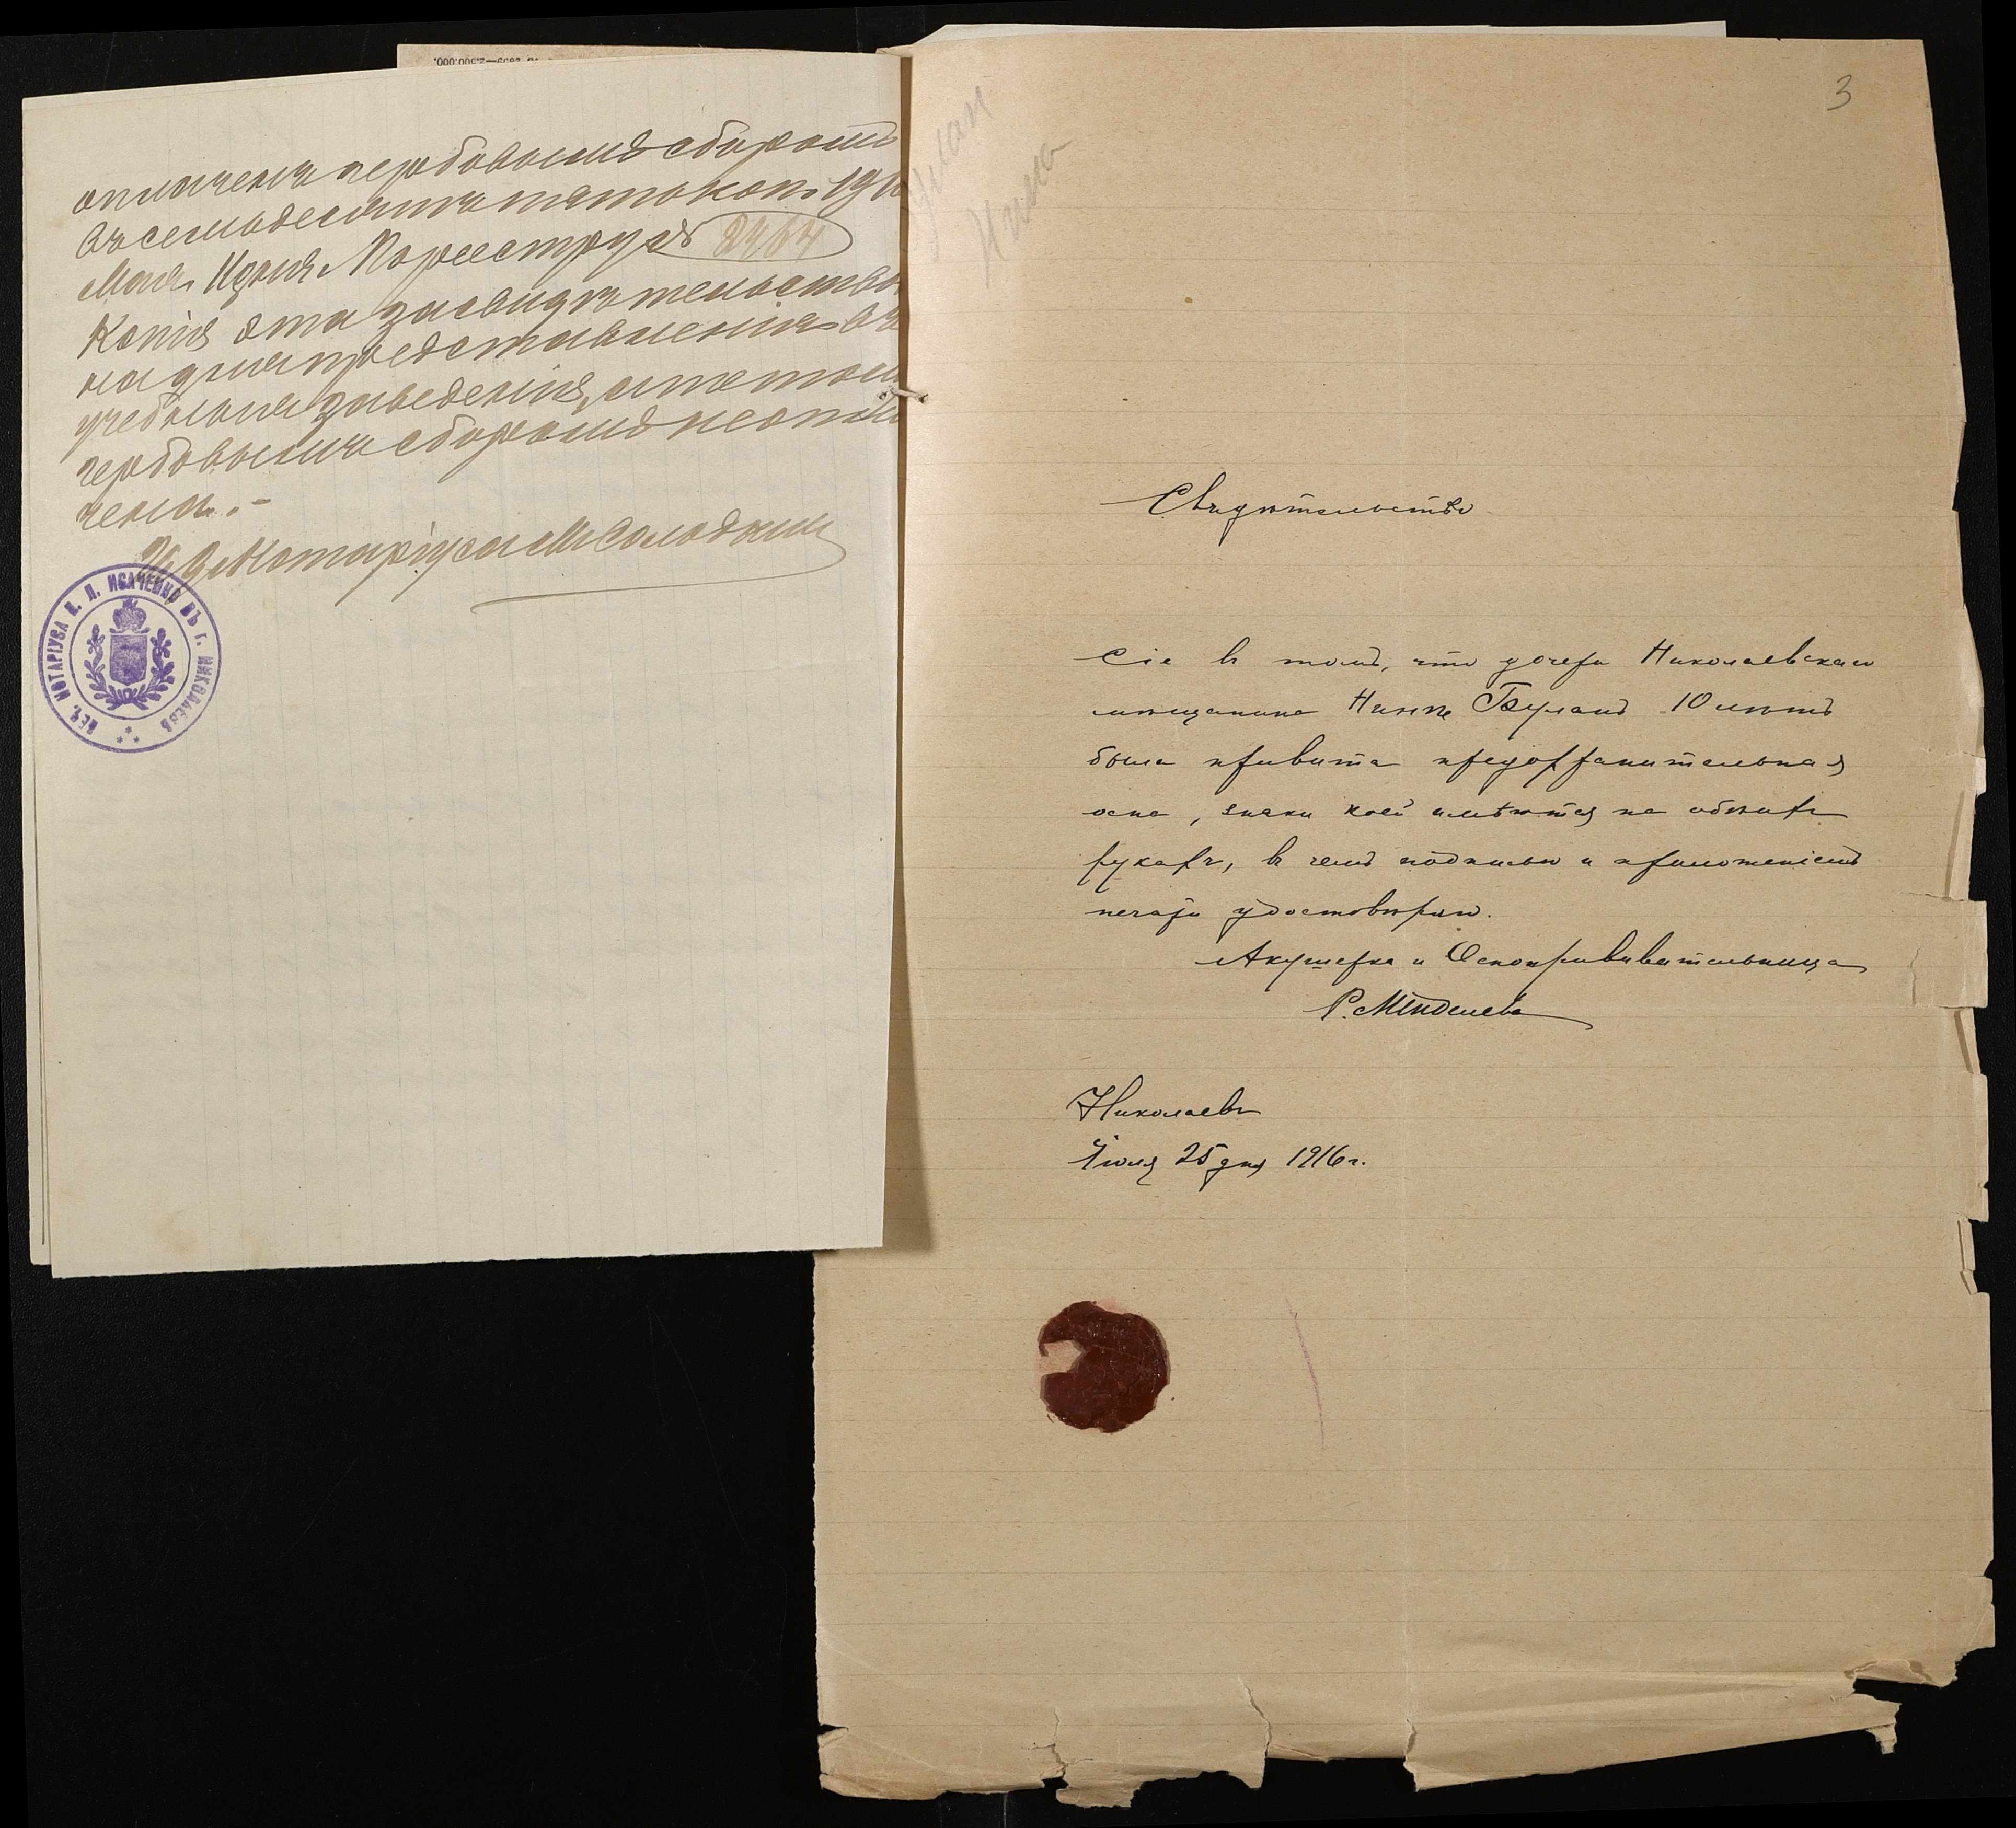 оплачена гербовымъ сборомъ
въ семьдесятъ пять коп. 191
Мая 11 дня. По реестру № 2464
Копія эта засвидѣтельство
на для представленія въ
учебныя заведенія, а потому
гербовымъ сборомъ не опла
чена.-
И. д. Нотаріуса М Солодкин
ПЕЧ. НОТАРІУСА П. ИСАЧЕНКО ВЪ Г. НИКОЛАЕВѢ
3
Нина
Свидѣтельство
Сіе въ томъ, что дочери Николаевскаго
мѣщанина Нинѣ Буланъ 10 лѣтъ
была привита предохранительная
оспа, знаки коей имѣются на обѣихъ
рукахъ, въ чемъ подписью и приложеніемъ
печати удостовѣряю.
Акушерка и Оспопрививательница
Р. Менделева
Николаевъ
Іюля 25 дня 1916 г.